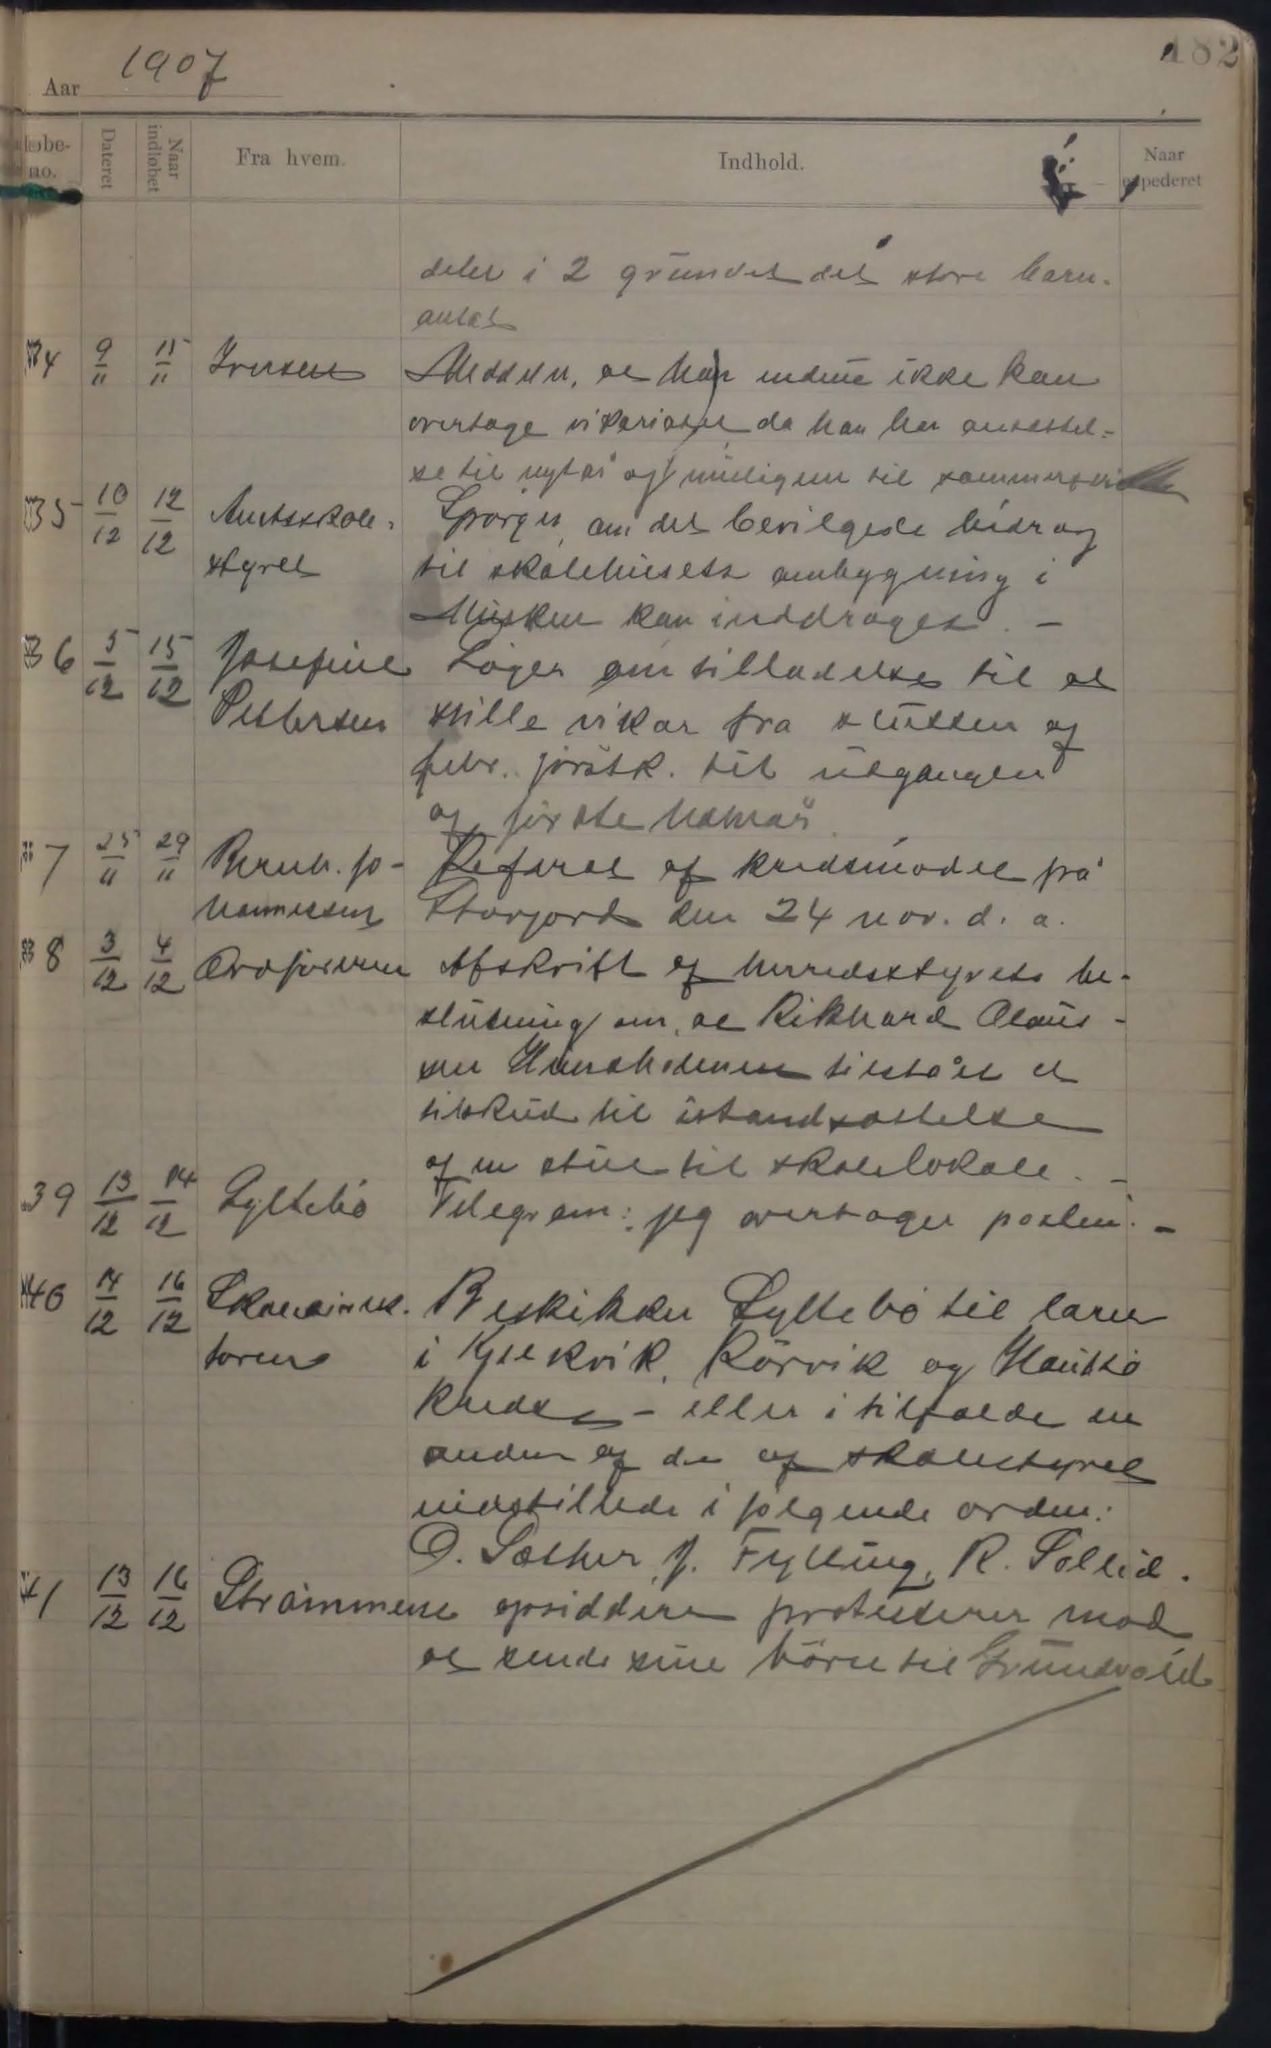 182
Aar 1907
Løbe-no. Dateret Naar indløbet Fra hvem. Indhold. Naar expederet
deler i 2 grundet det store barn-
antal
34 9/11 11/11 Iversen Meddeler, at han endnu ikke kan
overtage vikariatet da han har ansættel-
se til nytår og muligens til sommerferien
35 10/12 12/12 Amtsskole- Spørger, om det bevilgede bidrag
styret til skolehusets ombygning i
Musken kan inddrages. –
36 5/12 15/12 Josefine Søger om tilladelse til at
Pettersen stille vikar fra slutten af
febr. førstk. til udgangen
af første halvår
37 25/11 29/11 Bernh. Jo- Referat af kredsmödet på
hannessen Storjord den 24 nov. d. a.
38 3/12 4/12 Ordføreren Afskrift af herredsstyrets be-
slutning om, at Rikhard Olaus-
sen Hundholmen tilstået et
tilskud til istandsættelse
af en stue til skolelokale. –
39 13/12 14/12 Syltebö Telegram: jeg overtager posten. –
40 14/12 16/12 Skoledirek- Beskikker Syltebö til lærer
toren i Kjelkvik, Rörvik og Haukö
kredse – eller i tilfælde en
anden af de af skolestyret
indstillede i følgende orden:
O. Sæther, J. Fylling, R. Sollid.
41 13/12 16/12 Strömmens opsiddere protesterer mod
at sende sine börn til Grundvold